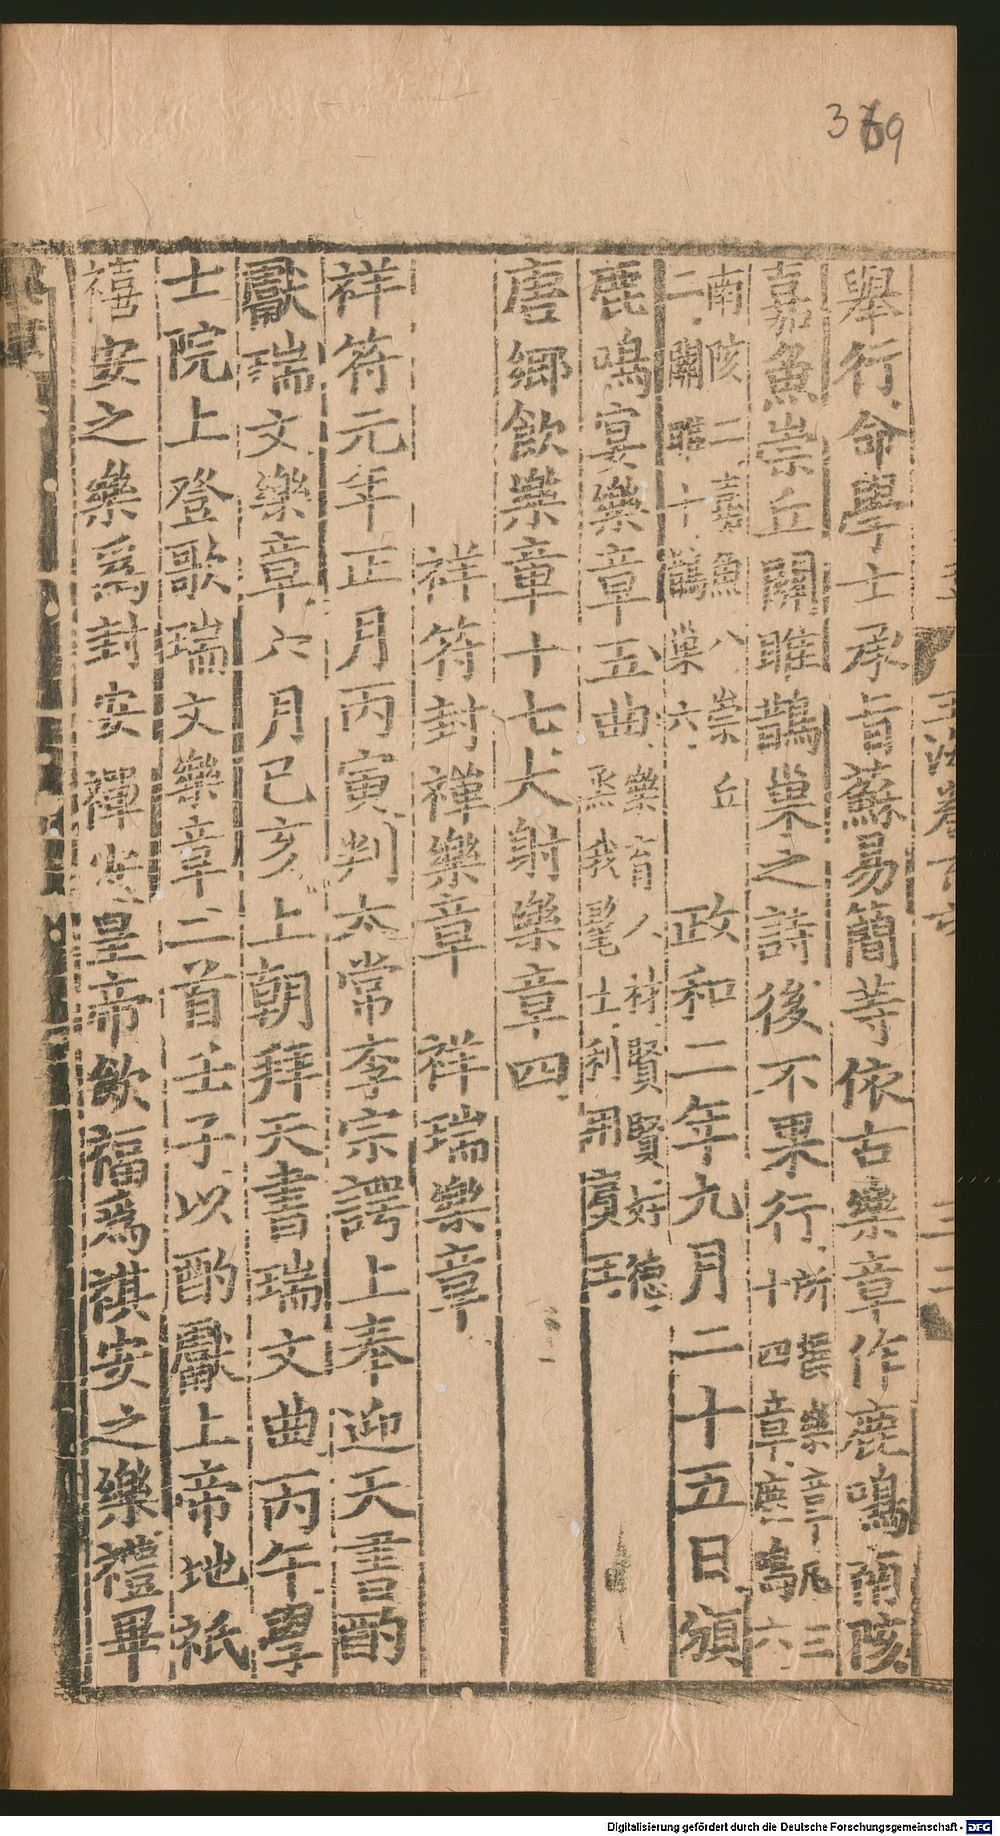 369
舉行命學士承旨蘇易簡等依古樂章作鹿鳴南陔
嘉魚崇丘關雎鵲巢之詩後不果行所撰樂章凡三十四章鹿鳴六
南陔二嘉魚八崇丘二關雎十鵲巢六 政和二年九月二十五日頒
鹿鳴宴樂章五曲樂育人材賢賢好德烝我髦士利用賓王
唐鄉飲樂章十七大射樂章四
祥符封禪樂章 祥瑞樂章
祥符元年正月丙寅判太常李宗諤上奉迎天書酌
獻瑞文樂章六月己亥上朝拜天書瑞文曲丙午學
士院上登歌瑞文樂章二首壬子以酌獻上帝地祇
禧安之樂爲封安禪安皇帝飲福爲祺安之樂禮畢
Digitalisierung gefördert durch die Deutsche Forschungsgemeinschaft - DFG